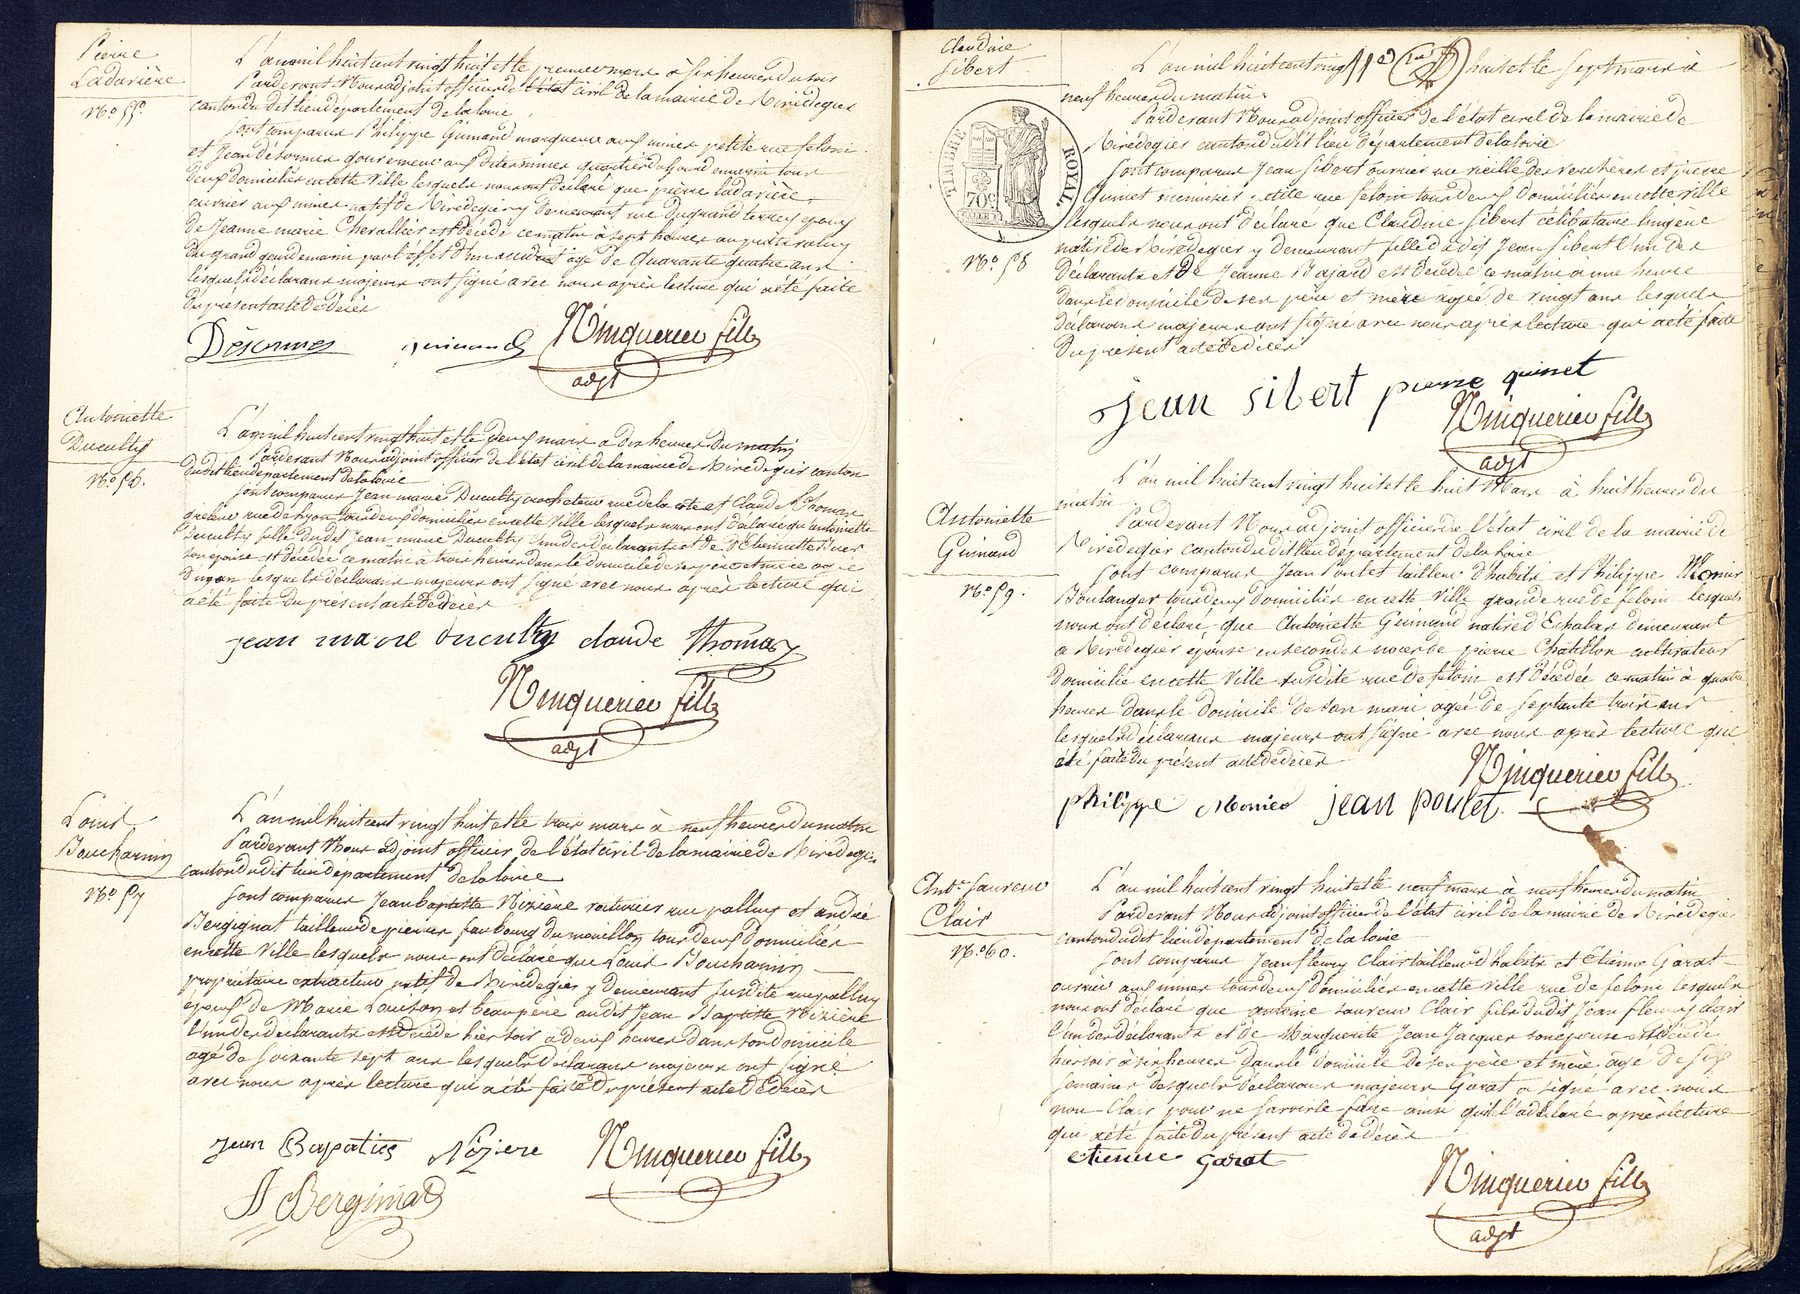 Pierre
Ladavière
N.o 55.
L'an mil huit cent vingt huit et le premier mars à six heures du soir
Pardevant Nous adjoint officier de l'état civil de la mairie de Rivedegier
canton dudit lieu département de la loire
Sont comparus Philippe Guinand marqueur aux mines petite rue feloin
et Jean Désormes gouverneur aux dites mines quartier du grand tous
deux domiciliés en cette Ville lesquels nous ont déclaré que pierre ladavière
ouvrier aux mines natif de Rivedegier y demeurant rue du grand époux
de Jeanne marie Chevallier est décédé ce matin à sept heures au puits
du grand par l'effet d'un accident âgé de Quarante quatre ans
lesquels déclarans majeurs ont signé avec nous après lecture qui a été faite
du présent acte de décès
Désormes guinand Ninquerier fils
adjt
Antoinette
Ducultÿ
N.o 56.
L'an mil huit cent vingt huit et le deux mars à dix heures du matin
Pardevant Nous adjoint officier de l'état civil de la mairie de Rivedegier canton
dudit lieu département de la loire
Sont comparus Jean marie Ducultÿ crocheteur rue de la et Claude Thomas
rue de Lyon tous deux domiciliés en cette Ville lesquels nous ont déclaré que antoinette
Ducultÿ fille dudit Jean marie Ducultÿ l'un des déclarants et de Etiennette
son épouse est décédée ce matin à trois heures dans le domicile de ses père et mère agée
d'un an lesquels déclarans majeurs ont signé avec nous après lecture qui
a été faite du présent acte de décès
jean marie ducultÿ claude Thomas
Ninquerier fils
adjt
Louis
Boucharnin
N.o 57
L'an mil huit cent vingt huit et le trois mars à neuf heures du matin
Pardevant Nous adjoint officier de l'état civil de la mairie de Rivedegier
canton dudit lieu département de la loire
Sont comparus Jean baptiste Nizière voiturier rue palluy et andré
Bergignat tailleur de pierres faubourg du mouillon tous deux domiciliés
en cette Ville lesquels nous ont déclaré que Louis Boucharnin
propriétaire extracteur natif de Rivedegier y demeurant susdite rue palluy
époux de Marie Louison et beaupère audit Jean Baptiste Nizière
l'un des déclarants est décédé hier soir à deux heures dans son domicile
agé de soixante sept ans lesquels déclarans majeurs ont signé
avec nous après lecture qui a été faite du présent acte de décès
jean Bapaties Nizière Ninquerier fils
A Bergimat
Claudine
Sibert
L'an mil huit cent vingt huit et le sept mars à
neuf heures du matin
Pardevant Nous adjoint officier de l'état civil de la mairie de
Rivedegier canton dudit lieu département de la loire
TIMBRE ROYAL
70c
N.o 58
Sont comparus Jean Sibert ouvrier rue vieille des verchères et pierre
Guinet menuisier petite rue feloin tous deux domiciliés en cette ville
lesquels nous ont déclaré que Claudine Sibert célibataire lingère
native de Rivedegier y demeurant fille dudit Jean Sibert l'un des
déclarants et de Jeanne Bajard est décédée ce matin à une heure
dans le domicile de ses père et mère agée de vingt ans lesquels
déclarans majeurs ont signé avec nous après lecture qui a été faite
du présent acte de décès
jean sibert pierre guinet
Ninquerier fils
adjt
Antoinette
Guinand
N.o 59.
L'an mil huit cent vingt huit et le huit Mars à huit heures du
matin
Pardevant Nous adjoint officier de l'état civil de la mairie de
Rivedegier canton dudit lieu département de la loire
Sont comparus Jean Poulet tailleur d'habits et Philippe Monier
Boulanger tous deux domiciliés en cette Ville grande rue de feloin lesquels
nous ont déclaré que Antoinette Guinand native d'Echalas demeurant
à Rivedegier épouse en secondes noces de pierre Chatillon cultivateur
domicilié en cette Ville susdite rue de feloin est décédée ce matin à quatre
heures dans le domicile de son mari agée de septante trois ans
lesquels déclarans majeurs ont signé avec nous après lecture qui
a été faite du présent acte de décès
Ninquerier fils
philippe Monier jean poulet
Ant.e Laureur
Clair
N.o 60.
L'an mil huit cent vingt huit et le neuf mars à neuf heures du matin
Pardevant Nous adjoint officier de l'état civil de la mairie de Rivedegier
canton dudit lieu département de la loire
Sont comparus Jean fleury Clair tailleur d'habits et Etienne Garat
ouvrier aux mines tous deux domiciliés en cette Ville rue de feloin lesquels
nous ont déclaré que antoine Clair fils dudit Jean fleury clair
l'un des déclarants et de Marguerite Jean Jacques son épouse est décédé
hier soir à six heures dans le domicile de ses père et mère agé de six
semaines lesquels déclarans majeurs Garat a signé avec nous
non Clair pour ne savoir le faire ainsi qu'il l'a déclaré après lecture
qui a été faite du présent acte de décès
etienne garat
Ninquerier fils
adjt